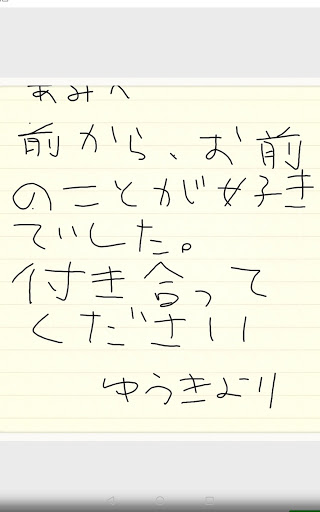 あみへ
前から、お前
のことが好き
でいした。
付き合って
ください
ゆうきより